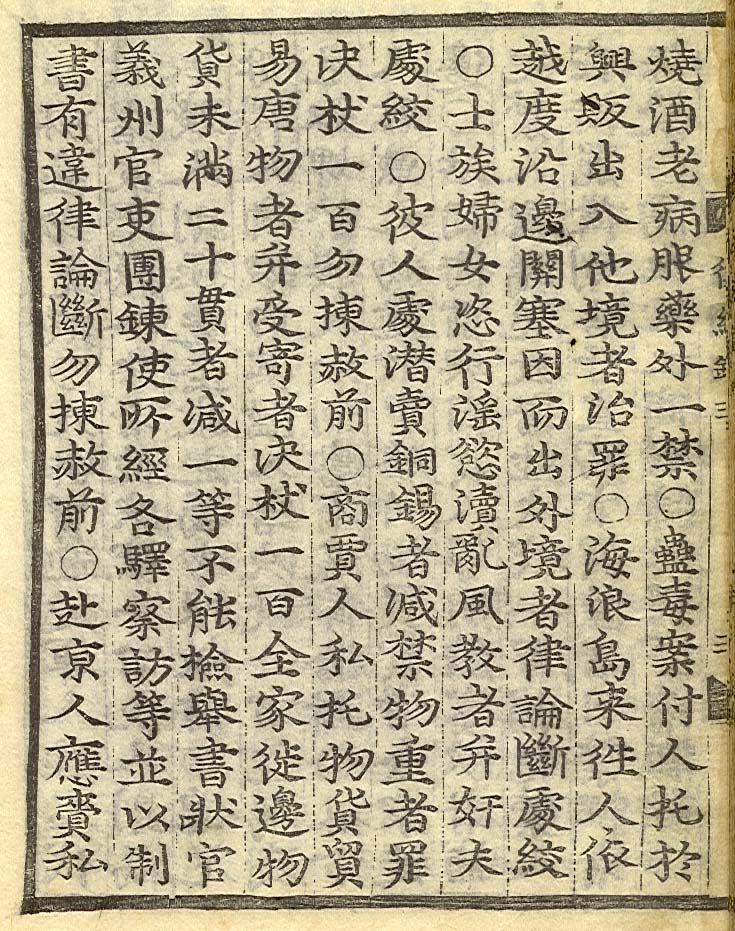 燒酒老病服藥外一禁○蠱毒案付人托於
興販出入他境者治罪○海浪島来往人依
越度沿邊關塞因而出外境者律論斷處絞
○士族婦女恣行滛慾瀆亂風敎者幷奸夫
處絞○彼人處潜賣銅錫者减禁物重者罪
决杖一百勿揀赦前○商賈人私托物貨貿
易唐物者幷受寄者决杖一百全家徙邊物
貨未滿二十貫者减一等不能撿擧書狀官
義州官吏團鍊使所經各驛察訪等並以制
書有違律論斷勿揀赦前○赴京人應賫私